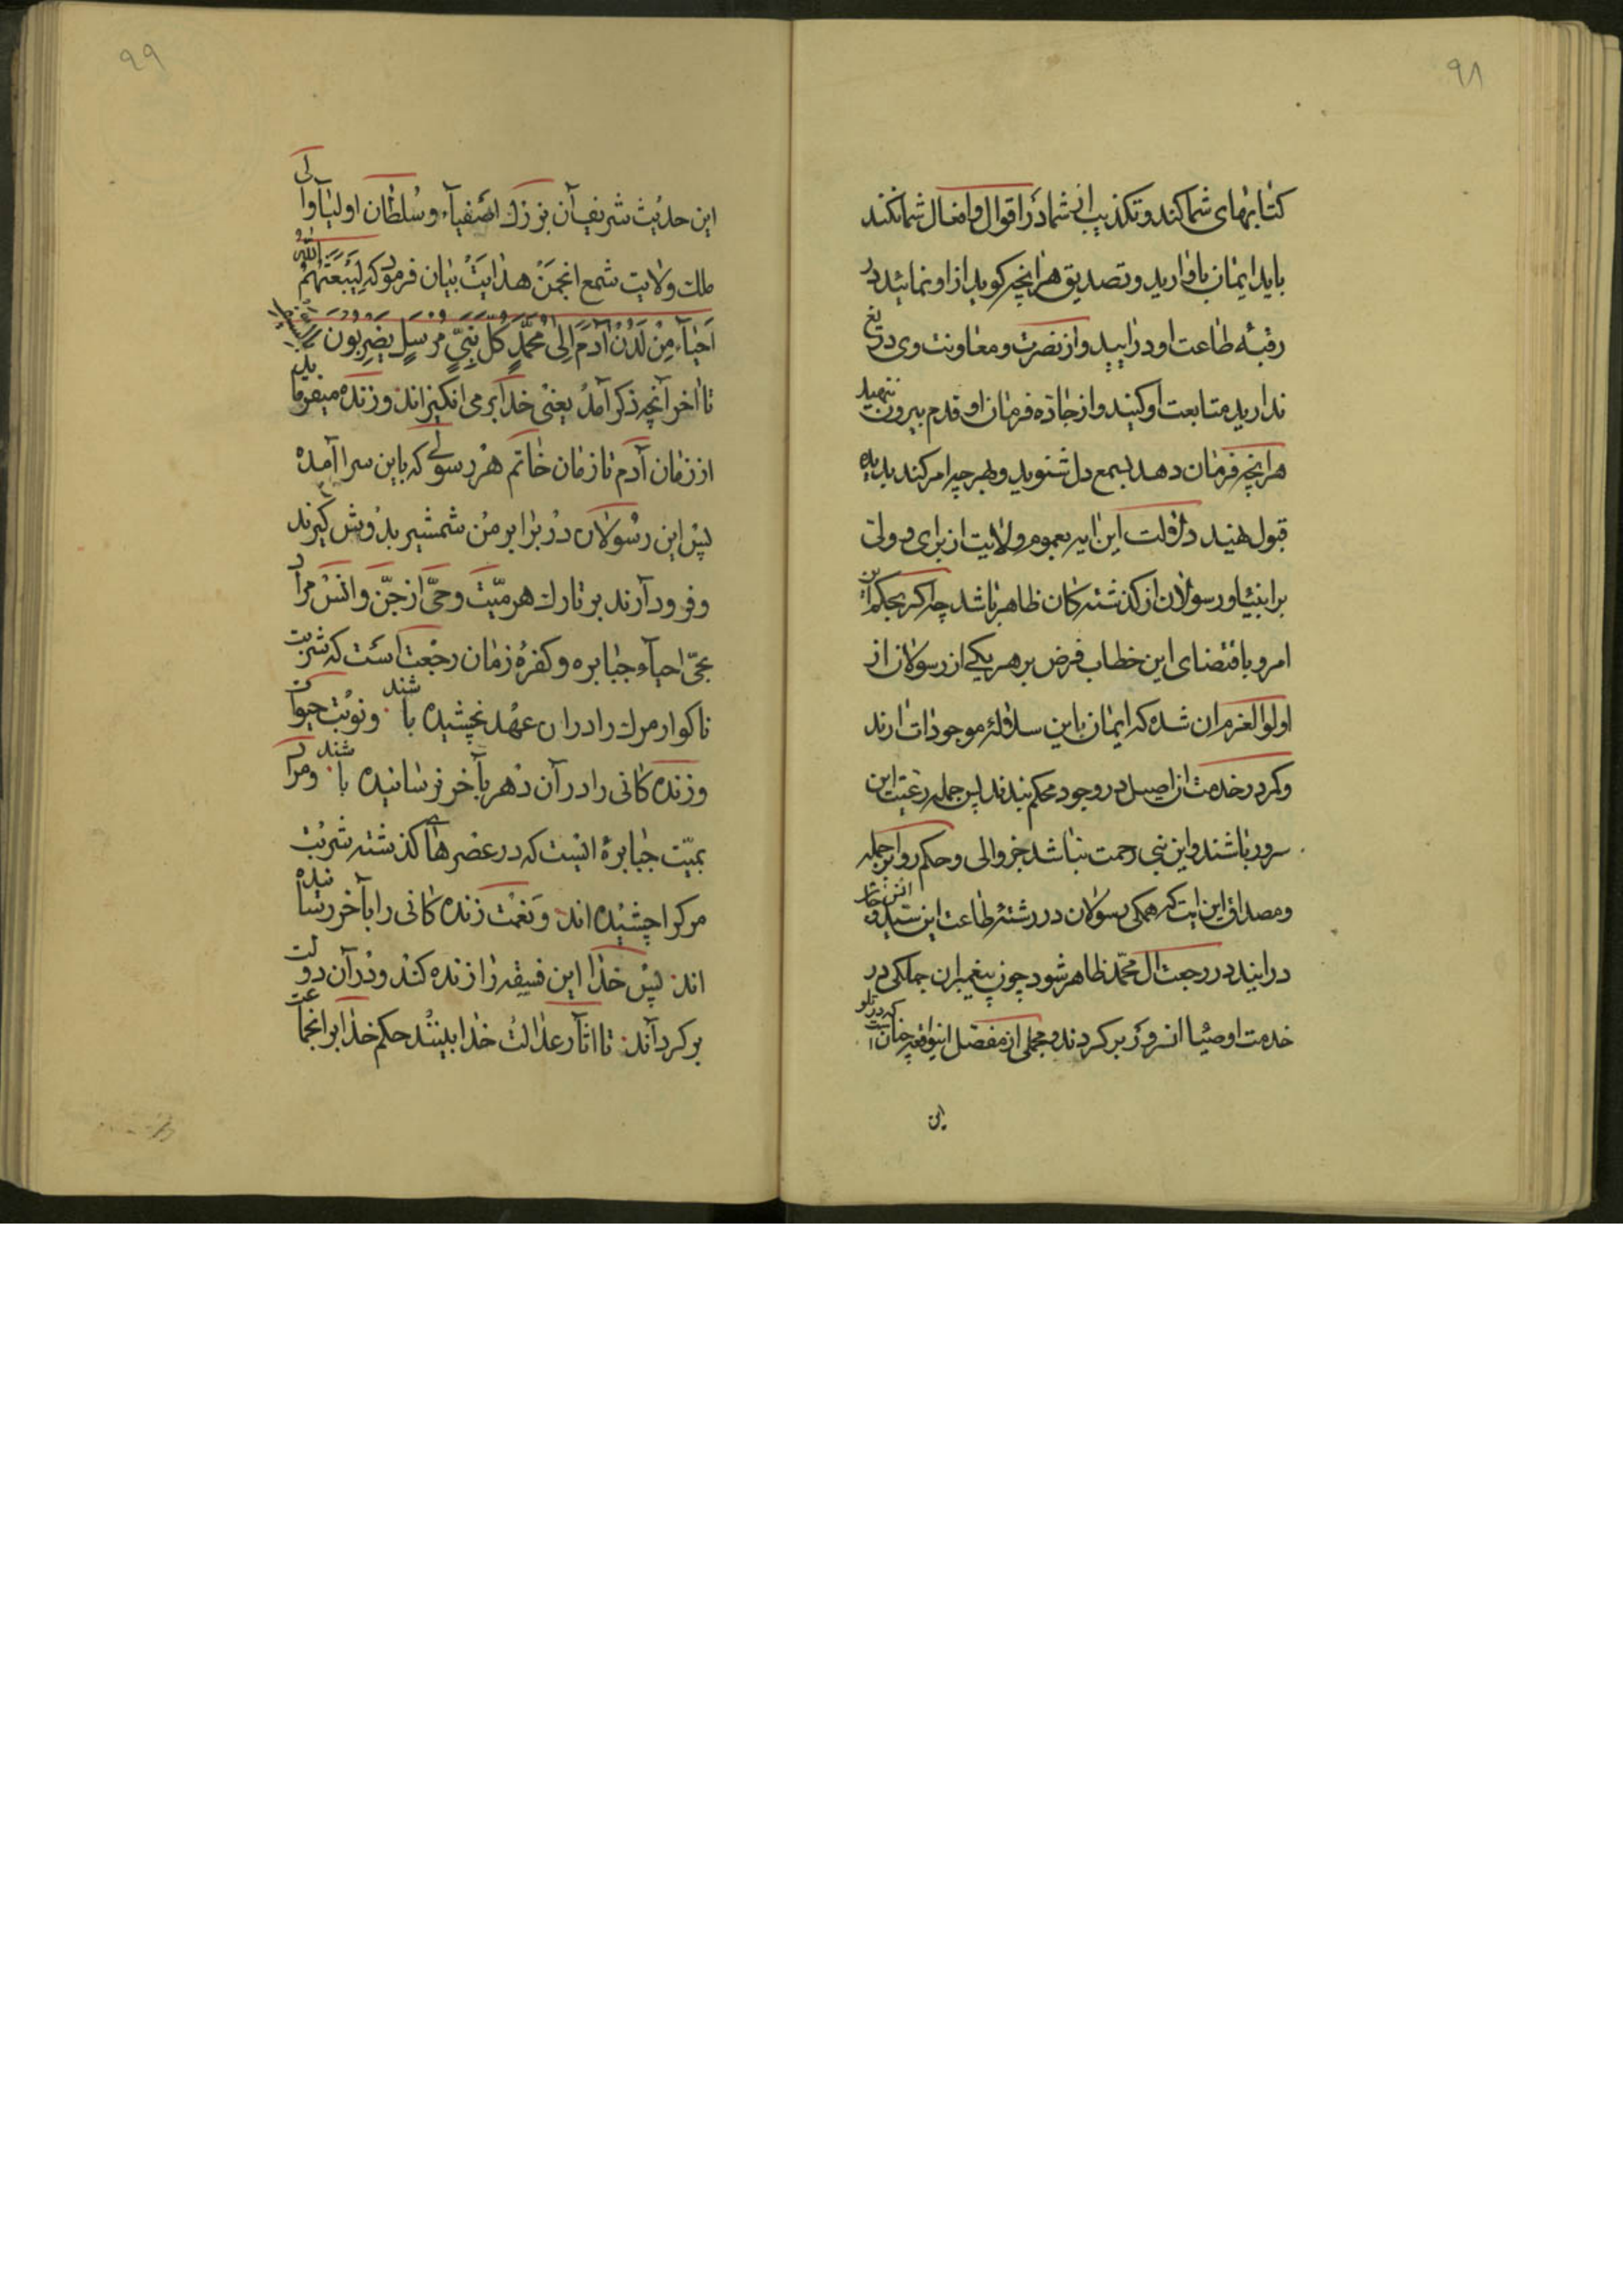 ۹۸
کتابهای شما کند و تکذیب شما در اقوال و افعال شما نکند
باید ایمان باو ارید و تصدیق هر انچه کوید از او نمائید در
رقبهٔ طاعت او در ایید و از نصرت و معاونت وی دریغ
ندارید متابعت او کنید و از جاده فرمان او قدم بیرون ننهید
هر انچه فرمان دهد بسمع دل شنوید و بهر چه امر کند بدیده
قبول نهید دلالت این ایه بعموم ولایت از برای
بر انبیا و رسولان از کذشته کان ظاهر باشد چه اکر بحکم این
امر و باقتضای این خطاب فرض بر هر یکی از رسولان از
اولوا العزم ان شده که ایمان باین سلالهٔ موجودات ارند
و کمر در خدمت ان اصیل در وجود محکم بندند پس جمله رعیت این
سرور باشند و این نبی رحمت نباشد جز والی و حکم روا بر جمله
و مصداق این ایت که همکی رسولان در رشتهٔ طاعت این سید انس و جان
در ایند در رجعت ال محمّد ظاهر شود چون پیغمبران جملکی در
خدمت اوصیا انروز بر کردند و مجملی از مفصل اینواقعه چنان است که در تلو
این
۹۹
این حدیث شریف آن بزرك اصفیآء و سُلطان اولیٰآ والی
ملك ولایت شمع انجمن هدایتْ بیٰان فرمود که لَیَبْعَثَنَّهُمُ اللّٰهُ
اَحیٰآء مِنْ لَدُنْ آدَمَ اِلیٰ مُحَمَّدٍ کُلَّ نَبِیٍّ مُرْسَلٍ یَضْرِبُونَ
تا اخر آنچه ذکر آمدْ یعنی خدا بر می انکیزاند و زنده میفرماید
از زمٰان آدم تا زمٰان خٰاتم هر رسولی که باین سرا آمده
پس این رسُولان دز برٰابر من شمشیر بدُوش کیرند
و فرود آرند بر تارك هر میّت و حیّ از جنّ و انسْ مراد
بحیّ احیآء جبٰابره و کفرهٔ زمٰان رجْعت است که شربت
ناکوار مرك را در ان عهْد نچشیده باشند و نوبْت حیوان
و زنده کانی را در آن دهر بآخر نرسٰانیده باشند و مراد
بمیّت جبٰابرهٔ انیست که در عصرهٰای کذشته شربْت
مرك را چشیْده اند و نغْمت زنده کانی را بآخر رسٰانیده
اند پسْ خدٰا این فسیقه رٰا زنده کنْد و در آن دولت
بر کردآند تا اثار عدٰالت خدٰا بینندْ حکم خدٰا بر انجماعت